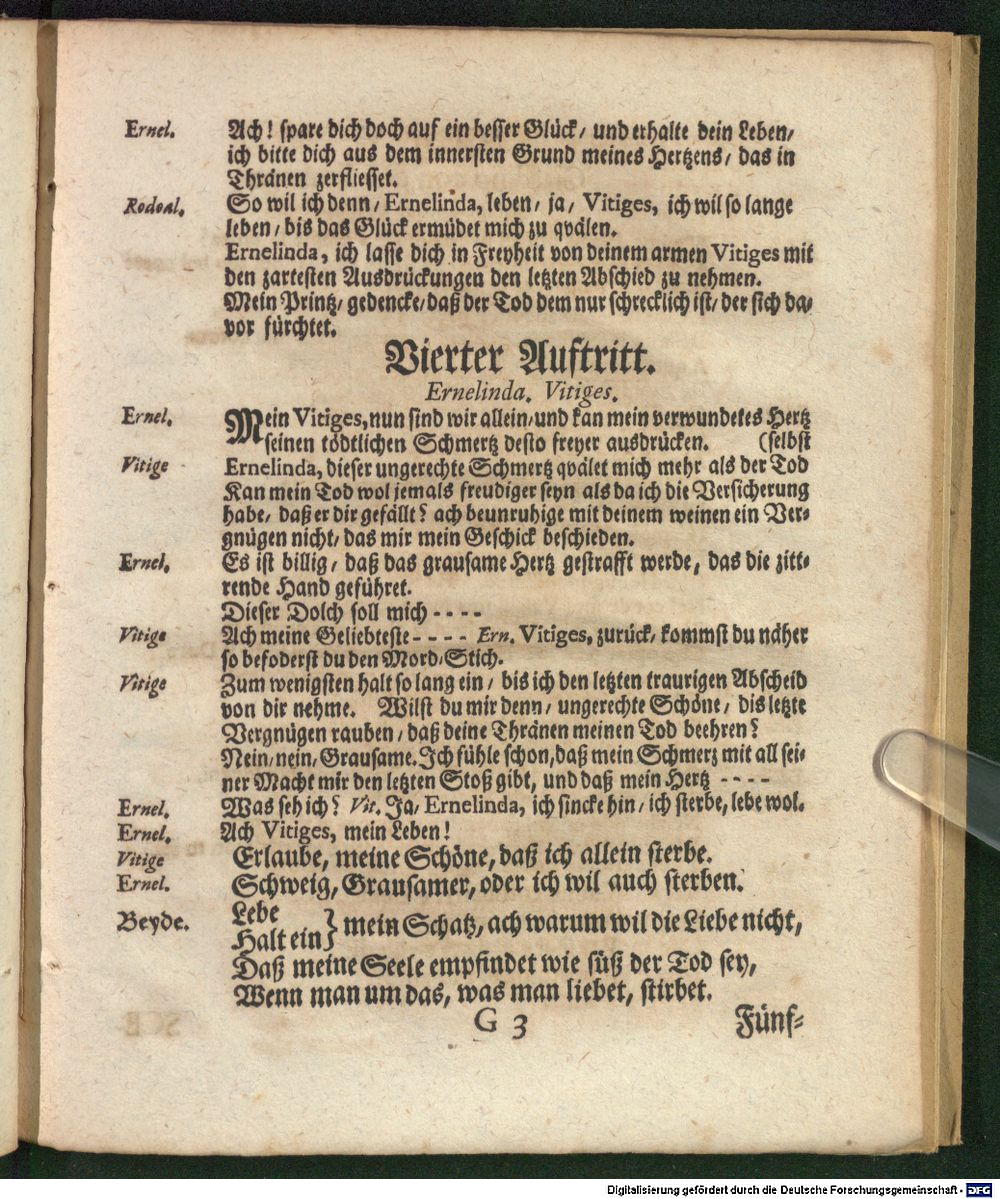 Ernel. Ach! spare dich doch auf ein besser Glück/ und erhalte dein Leben/
ich bitte dich aus dem innersten Grund meines Hertzens/ das in
Thränen zerfliesset.
Rodoal. So wil ich denn/ Ernelinda, leben/ ja/ Vitiges, ich wil so lange
leben/ bis das Glück ermüdet mich zu qvälen.
Ernelinda, ich lasse dich in Freyheit von deinem armen Vitiges mit
den zartesten Ausdrückungen den letzten Abschied zu nehmen.
Mein Printz/ gedencke/ daß der Tod dem nur schrecklich ist/ der sich da-
vor fürchtet.
Vierter Auftritt.
Ernelinda. Vitiges.
Ernel. Mein Vitiges, nun sind wir allein/ und kan mein verwundetes Hertz
seinen tödtlichen Schmertz desto freyer ausdrücken. (selbst
Vitige Ernelinda, dieser ungerechte Schmertz qvälet mich mehr als der Tod
Kan mein Tod wol jemals freudiger seyn als da ich die Versicherung
habe/ daß er dir gefällt? ach beunruhige mit deinem weinen ein Ver-
gnügen nicht/ das mir mein Geschick beschieden.
Ernel. Es ist billig/ daß das grausame Hertz gestrafft werde, das die zitt-
rende Hand geführet.
Dieser Dolch soll mich - - - -
Vitige Ach meine Geliebteste - - - - Ern. Vitiges, zurück/ kommst du näher
so befoderst du den Mord-Stich.
Vitige Zum wenigsten halt so lang ein/ bis ich den letzten traurigen Abscheid
von dir nehme. Wilst du mir denn/ ungerechte Schöne/ dis letzte
Vergnügen rauben/ daß deine Thränen meinen Tod beehren?
Nein/ nein/ Grausame. Ich fühle schon, daß mein Schmerz mit all sei-
ner Macht mir den letzten Stoß gibt, und daß mein Hertz - - - -
Ernel. Was seh ich? Vit. Ja/ Ernelinda, ich sincke hin/ ich sterbe, lebe wol.
Ernel. Ach Vitiges, mein Leben!
Vitige Erlaube, meine Schöne, daß ich allein sterbe.
Ernel. Schweig, Grausamer, oder ich wil auch sterben.
Beyde. Lebe
Halt ein} mein Schatz, ach warum wil die Liebe nicht,
Daß meine Seele empfindet wie süß der Tod sey,
Wenn man um das, was man liebet, stirbet.
G 3 Fünf-
Digitalisierung gefördert durch die Deutsche Forschungsgemeinschaft - DFG